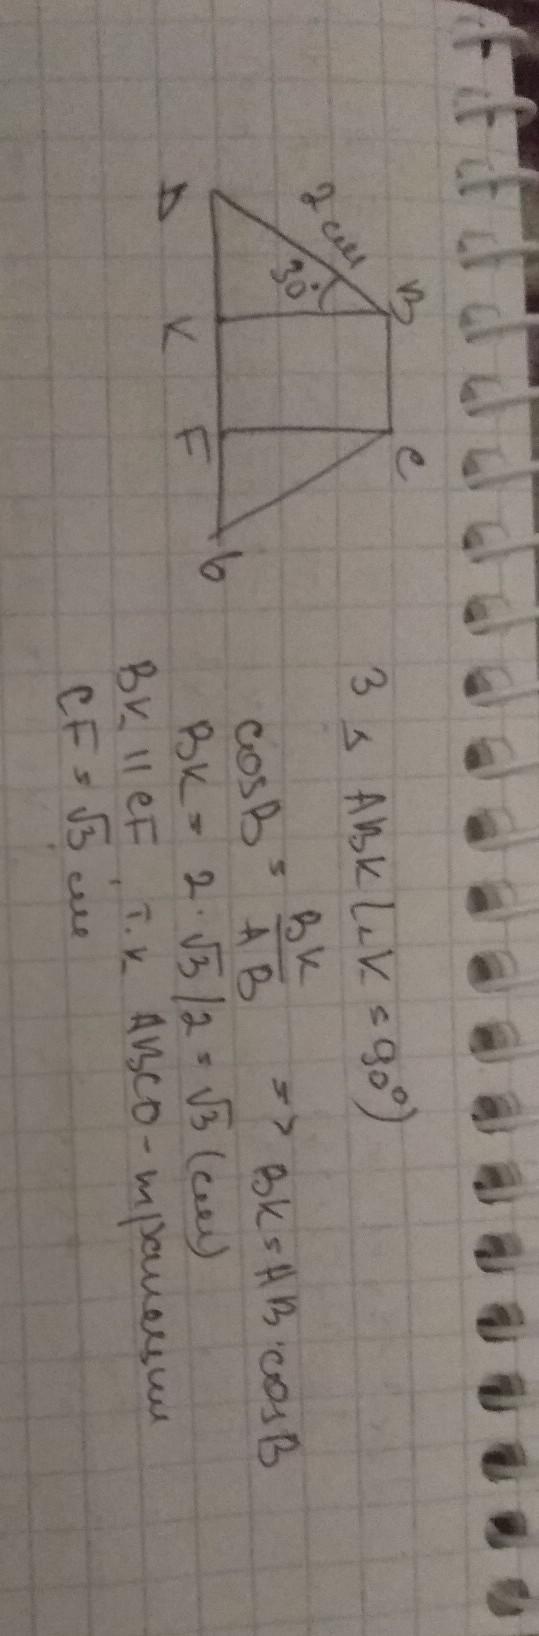 B
C
2 см
30°
A
K
F
D
З Δ ABK (∠K = 90°)
cosB = BK/AB => BK = AB·cosB
BK = 2·√3/2 = √3 (см)
BK || CF, т.к ABCD - трапеции
CF = √3 см